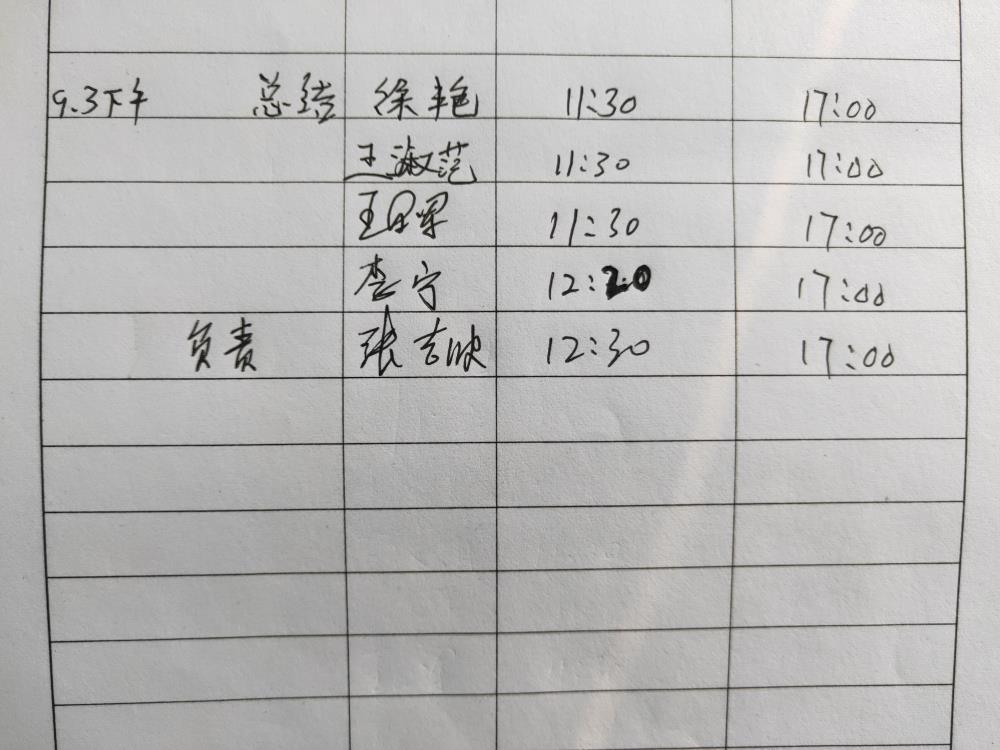 9.3下午 总结 徐艳 11:30 17:00
王淑范 11:30 17:00
王日军 11:30 17:00
李宁 12:20 17:00
负责 张吉映 12:30 17:00